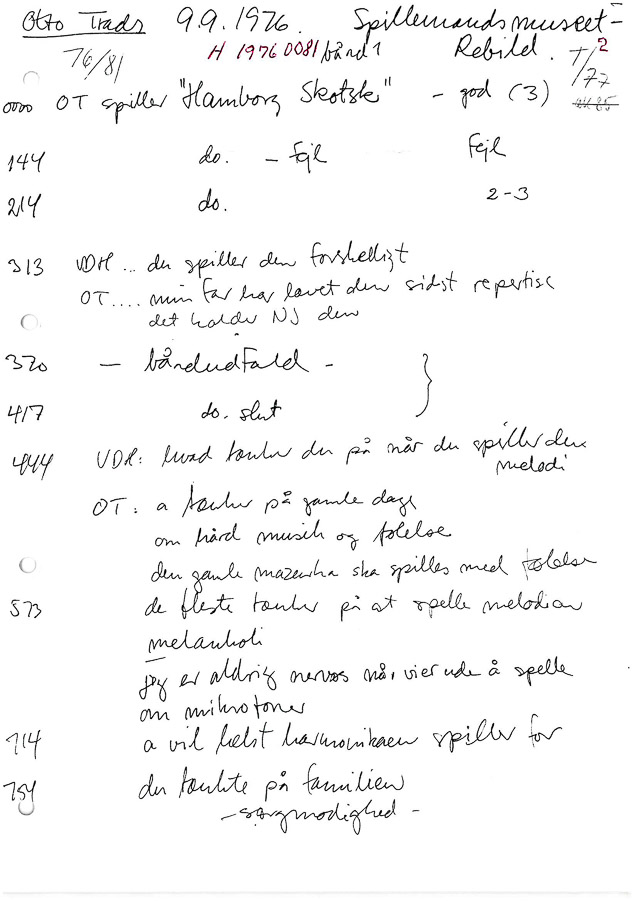 Otto Trads 9.9.1976. Spillemandsmuseet -
76/81 H 1976 0081 bånd 1 Rebild. T/2
77
0000 OT spiller "Hamborg Skotsk" - god (3)
144 do. - Fejl Fejl
214 do. 2-3
313 VDH ... du spiller den forskelligt
OT.... min far har lavet den sidst repertise
det kalder NJ den
370 - båndudfald -
417 do. slut
444 VDH: hvad tænker du på når du spiller den
melodi
OT: a tænker på gamle dage
om hård musik og følelse
den gamle mazurka ska spilles med følelse
573 de fleste tænker på at spelle melodien
melankoli
jeg er aldrig nervøs når vi er ude å spelle
om mikrotoner
714 a vil helst harmonikaen spiller for
754 du tænkte på familien
- sørgmodighed -